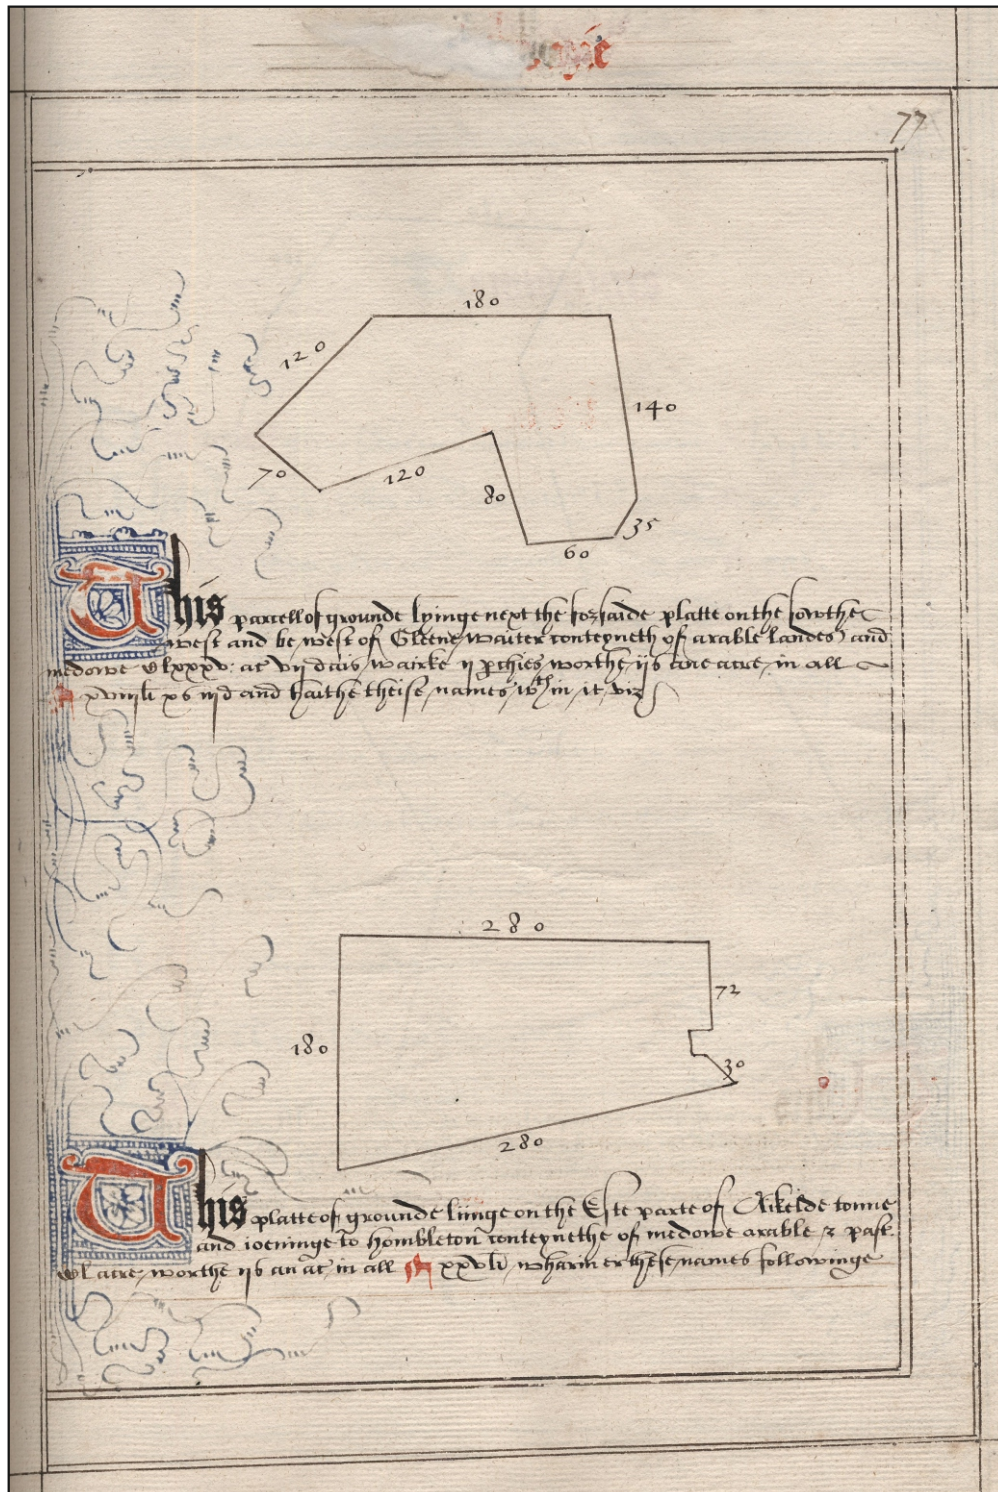 77
180
120
140
70
120
80
35
60
This parcell of grounde lyinge next the forsaide platte on the sowthe
west and be west of Gleene waiter conteyneth of arable landes and
medowe Clxxxv ac vij dais wairke ij perchies worthe ijs ane acre in all
xviijli xs iijd and haithe theise names wth in it viz
280
72
180
30
280
This platte of grounde liinge on the Este parte of Akelde towne
and ioeninge to hombleton conteynethe of medowe arable & past.
CCl acre worthe ijs an ac in all xxvli wharin er these names followinge